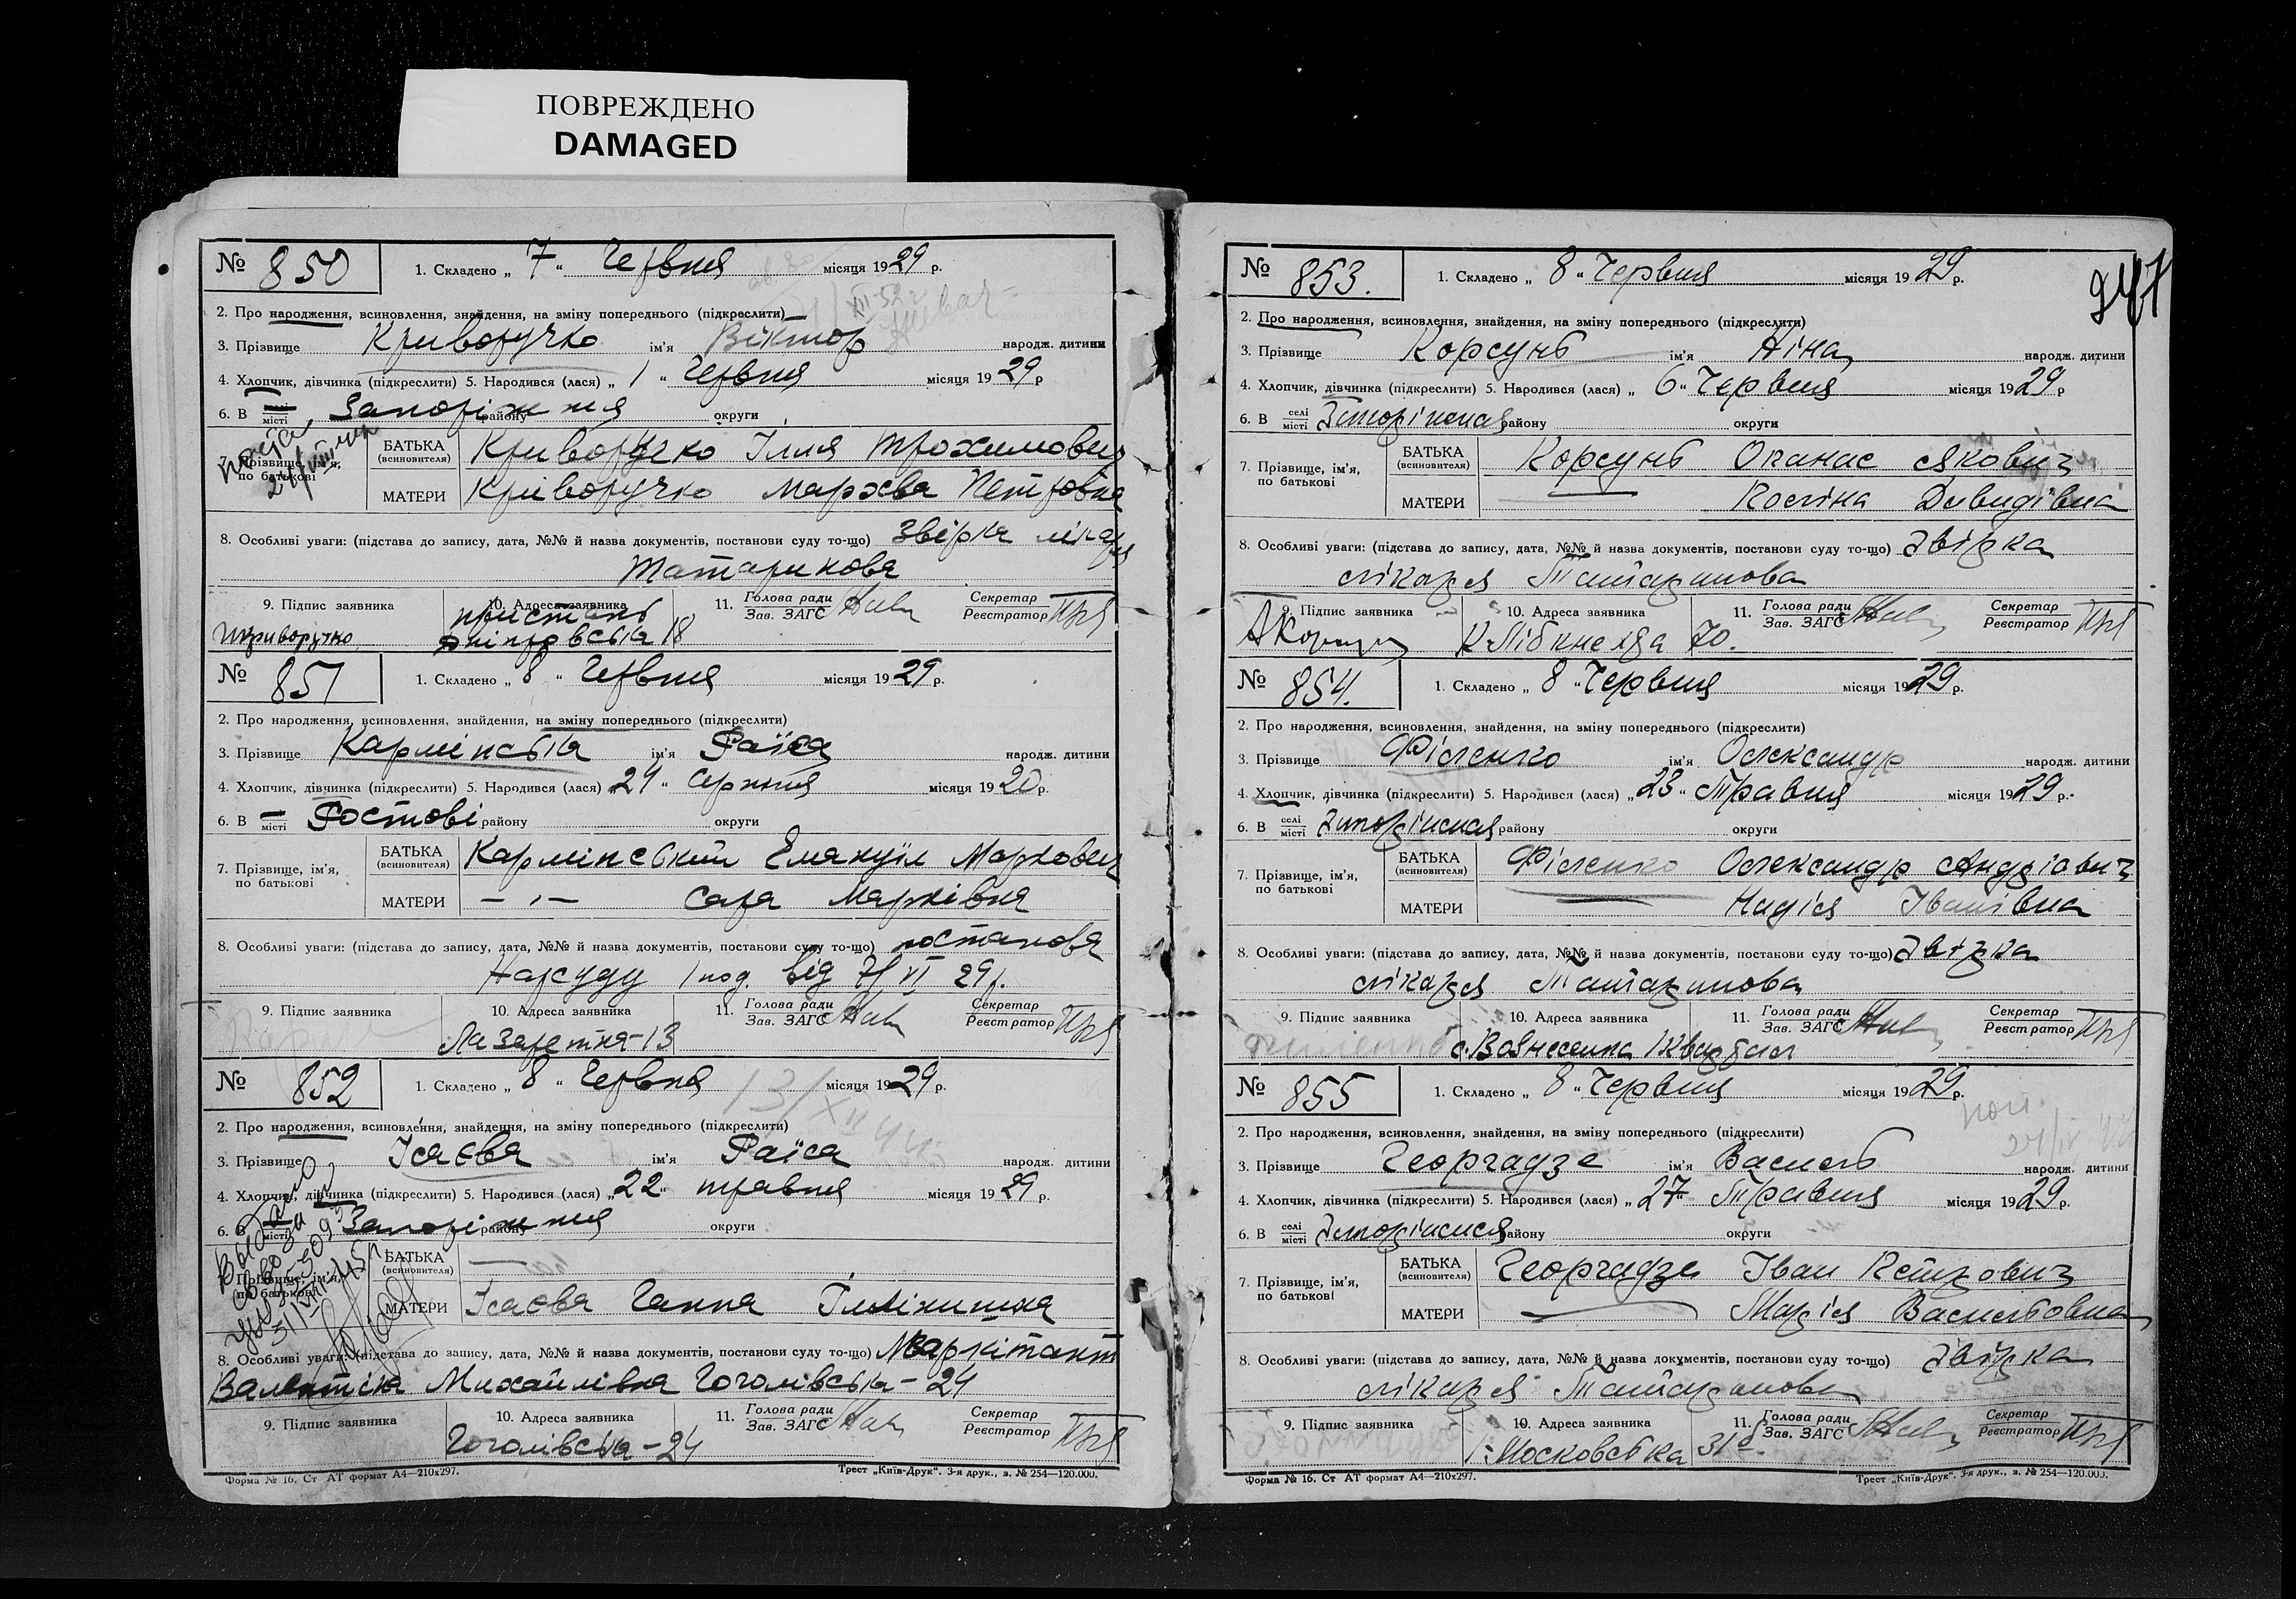 ПОВРЕЖДЕНО
DAMAGED
№ 850
1. Складено „ 7 “ Червня місяця 1929 р.
2. Про народження, всиновлення, знайдення, на зміну попереднього (підкреслити)
3. Прізвище Криворучко ім'я Віктор народж. дитини
4. Хлопчик, дівчинка (підкреслити) 5. Народився (лася) „ 1 “ Червня місяця 1929 р
6. В селі місті Запоріжжя району округи
7. Прізвище, ім'я, по батькові
БАТЬКА (всиновителя) Криворучко Ілля Трохимович
МАТЕРИ Криворучко Петровна
8. Особливі уваги: (підстава до запису, дата, №№ й назва документів, постанови суду то-що) Звірка лікаря
Татаринова
9. Підпис заявника
10. Адреса заявника
11. Голова ради Зав. ЗАГС
Секретар Реєстратор
Криворучко пристань
Дніпровська 18
№ 851
1. Складено „ 8 “ Червня місяця 1929 р.
2. Про народження, всиновлення, знайдення, на зміну попереднього (підкреслити)
3. Прізвище Кармінська ім'я Раїса народж. дитини
4. Хлопчик, дівчинка (підкреслити) 5. Народився (лася) „ 24 “ Серпня місяця 1920 р.
6. В місті Ростові району округи
7. Прізвище, ім'я, по батькові
БАТЬКА (всиновителя) Кармінський Емануїл Маркович
МАТЕРИ — „ — Сара Марківна
8. Особливі уваги: (підстава до запису, дата, №№ й назва документів, постанови суду то-що) постанова
Нарсуду від 7/VI 29р.
9. Підпис заявника
10. Адреса заявника
11. Голова ради Зав. ЗАГС
Секретар Реєстратор
Лазаретня-13
№ 852
1. Складено „ 8 “ Червня місяця 1929 р.
2. Про народження, всиновлення, знайдення, на зміну попереднього (підкреслити)
3. Прізвище Ісаєва ім'я Раїса народж. дитини
4. Хлопчик, дівчинка (підкреслити) 5. Народився (лася) „ 22 “ травня місяця 1929 р.
6. В місті Запоріжжя району округи
7. Прізвище, ім'я, по батькові
БАТЬКА (всиновителя) —
МАТЕРИ Ісаєва Ганна
8. Особливі уваги: (підстава до запису, дата, №№ й назва документів, постанови суду то-що) Маркітант
Валентіна Михайлівна Гоголівська-24
9. Підпис заявника
10. Адреса заявника
11. Голова ради Зав. ЗАГС
Секретар Реєстратор
Гоголівська-24
Форма № 16. Ст АТ формат А4—210х297.
Трест „Київ-Друк“. 3-я друк., з. № 254—120.000.
№ 853.
1. Складено „ 8 “ Червня місяця 1929 р.
247
2. Про народження, всиновлення, знайдення, на зміну попереднього (підкреслити)
3. Прізвище Корсунь ім'я Ніна народж. дитини
4. Хлопчик, дівчинка (підкреслити) 5. Народився (лася) „ 6 “ Червня місяця 1929 р
6. В селі місті Запоріжжя району округи
7. Прізвище, ім'я, по батькові
БАТЬКА (всиновителя) Корсунь Опанас Якович
МАТЕРИ — Давидівна
8. Особливі уваги: (підстава до запису, дата, №№ й назва документів, постанови суду то-що) Звірка
лікаря Татаринова
9. Підпис заявника
10. Адреса заявника
11. Голова ради Зав. ЗАГС
Секретар Реєстратор
К Лібкнехта 70.
№ 854.
1. Складено „ 8 “ Червня місяця 1929 р.
2. Про народження, всиновлення, знайдення, на зміну попереднього (підкреслити)
3. Прізвище Філенко ім'я Олександр народж. дитини
4. Хлопчик, дівчинка (підкреслити) 5. Народився (лася) „ 23 “ Травня місяця 1929 р.
6. В селі місті Запоріжжя району округи
7. Прізвище, ім'я, по батькові
БАТЬКА (всиновителя) Філенко Олександр Андріевич
МАТЕРИ — Надія Іванівна
8. Особливі уваги: (підстава до запису, дата, №№ й назва документів, постанови суду то-що) Звірка
лікаря Татаринова
9. Підпис заявника
10. Адреса заявника
11. Голова ради Зав. ЗАГС
Секретар Реєстратор
с. Вознесенка 1 квартал
№ 855
1. Складено „ 8 “ Червня місяця 1929 р.
2. Про народження, всиновлення, знайдення, на зміну попереднього (підкреслити)
3. Прізвище Георгадзе ім'я Василь народж. дитини
4. Хлопчик, дівчинка (підкреслити) 5. Народився (лася) „ 27 “ Травня місяця 1929 р.
6. В селі місті Запоріжжя району округи
7. Прізвище, ім'я, по батькові
БАТЬКА (всиновителя) Георгадзе Іван Петрович
МАТЕРИ — Марія Васильовна
8. Особливі уваги: (підстава до запису, дата, №№ й назва документів, постанови суду то-що) Звірка
лікаря Татаринова
9. Підпис заявника
10. Адреса заявника
11. Голова ради Зав. ЗАГС
Секретар Реєстратор
Московська 31
Форма № 16. Ст АТ формат А4—210х297.
Трест „Київ-Друк“. 3-я друк., з. № 254—120.000.